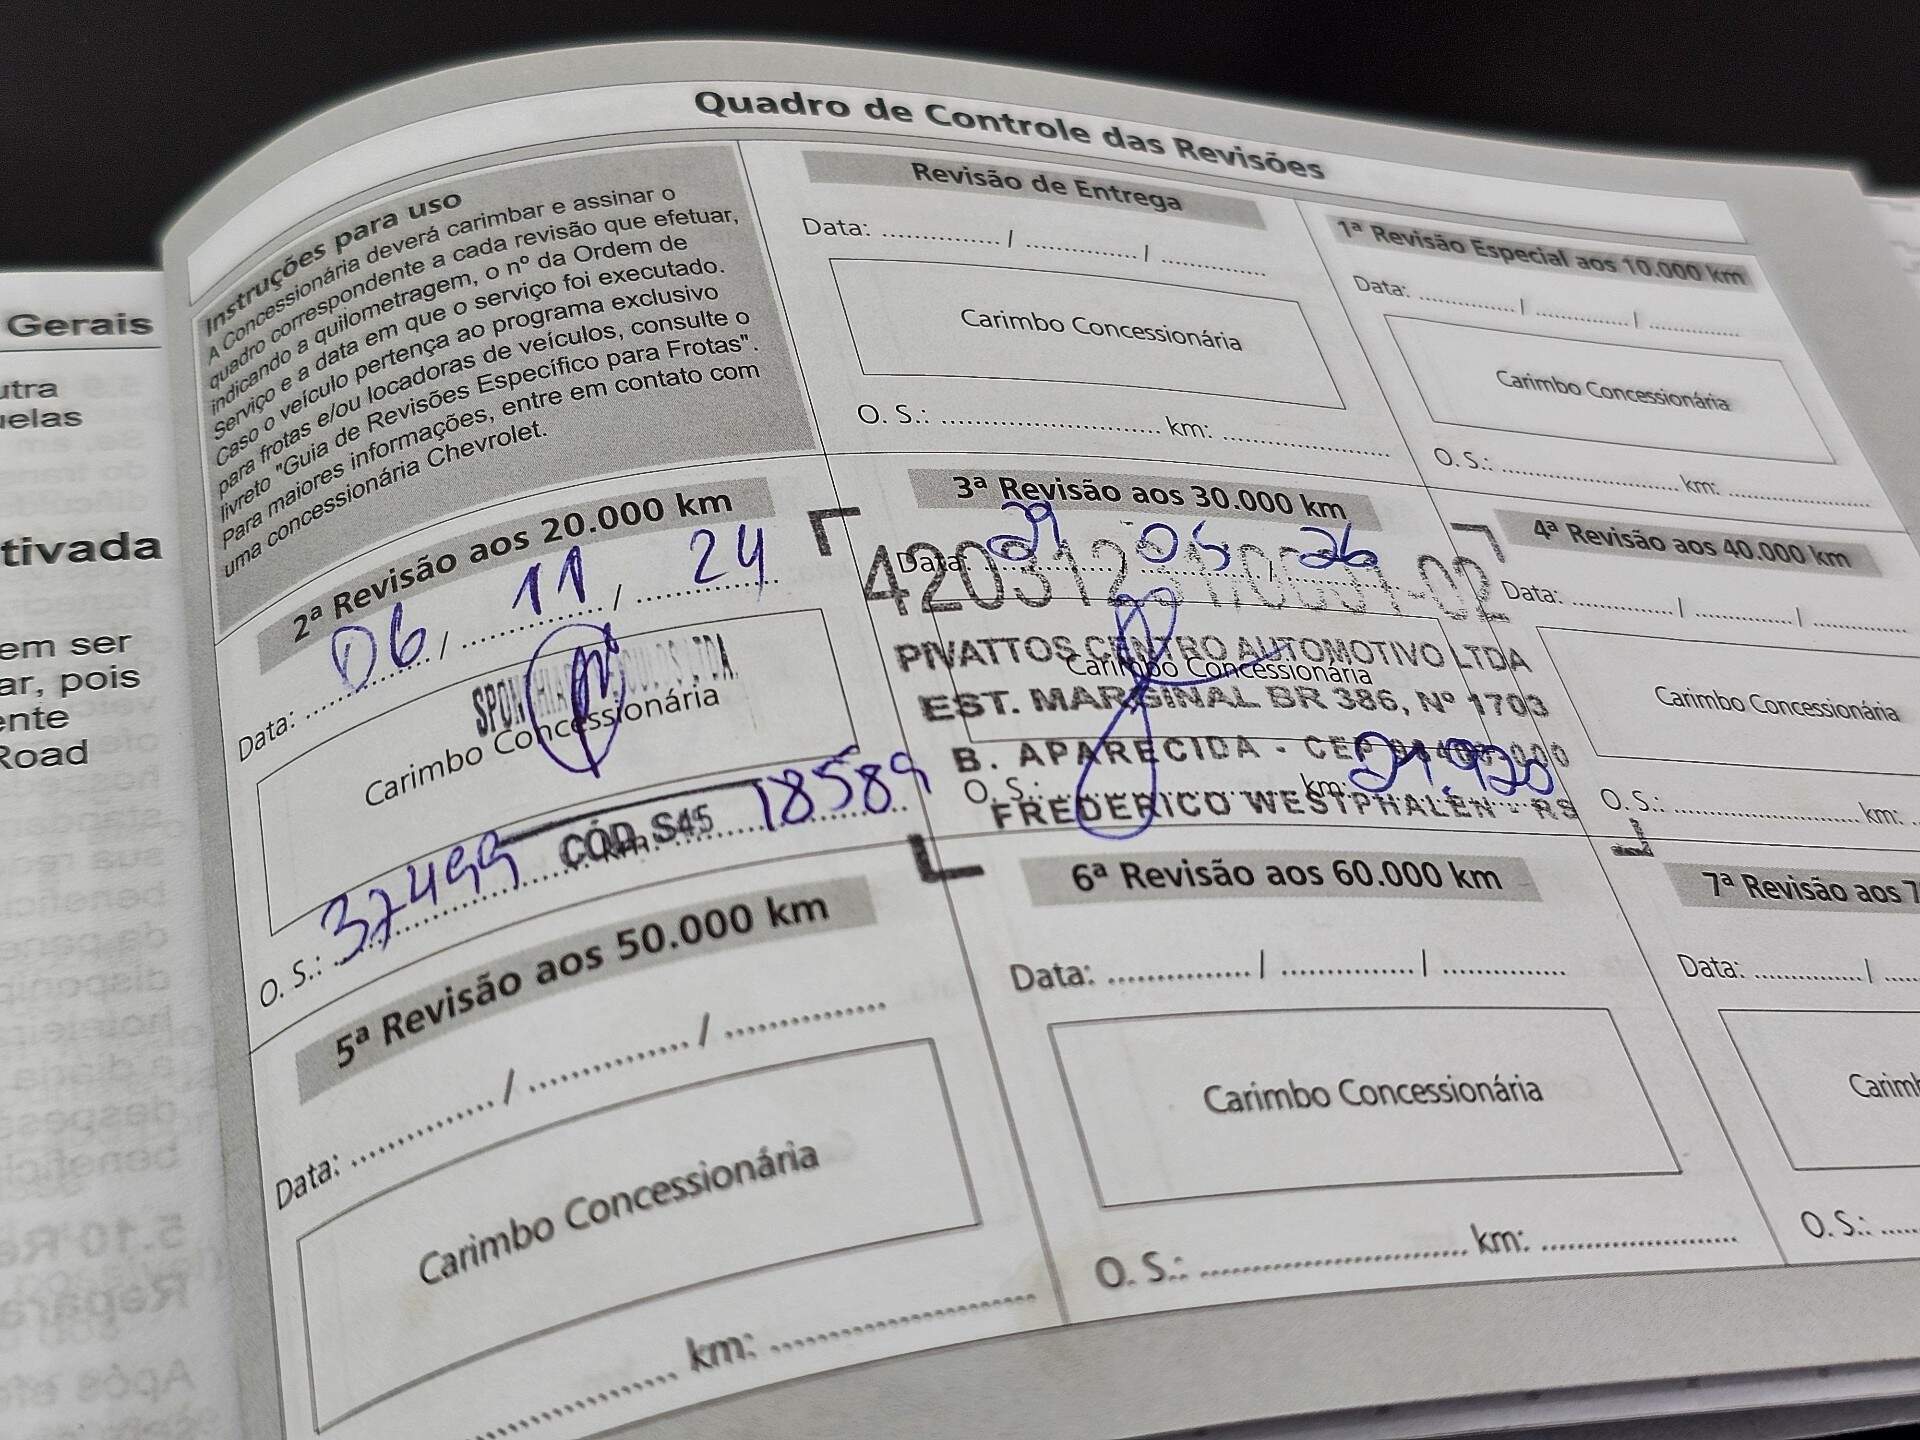 Gerais
utra
uelas
tivada
em ser
ar, pois
ente
Road
Quadro de Controle das Revisões
Instruções para uso
A Concessionária deverá carimbar e assinar o
quadro correspondente a cada revisão que efetuar,
indicando a quilometragem, o nº da Ordem de
Serviço e a data em que o serviço foi executado.
Caso o veículo pertença ao programa exclusivo
para frotas e/ou locadoras de veículos, consulte o
livreto "Guia de Revisões Específico para Frotas".
Para maiores informações, entre em contato com
uma concessionária Chevrolet.
Revisão de Entrega
Data: ............... / ............... / ...............
Carimbo Concessionária
O. S.: ............................ km: ......................
1ª Revisão Especial aos 10.000 km
Data: ............... / ............... / ...............
Carimbo Concessionária
O. S.: ............................ km: ......................
2ª Revisão aos 20.000 km
Data: 06 / 11 / 24
LTDA.
Carimbo Concessionária
CÓD. S45
O. S.: 37499 km: 18589
3ª Revisão aos 30.000 km
Data: 29 05 26
PIVATTOS CENTRO AUTOMOTIVO LTDA
Carimbo Concessionária
EST. MARGINAL BR 386, Nº 1703
B. APARECIDA - CEP
O. S.: km: 21.920
FREDERICO WESTPHALEN - RS
4ª Revisão aos 40.000 km
Data: ............... / ............... / ...............
Carimbo Concessionária
O. S.: ............................ km: ..
5ª Revisão aos 50.000 km
Data: ............... / ............... / ...............
Carimbo Concessionária
............................ km: ......................
6ª Revisão aos 60.000 km
Data: ............... / ............... / ...............
Carimbo Concessionária
O. S.: ............................ km: ......................
7ª Revisão aos 7
Data: ............... / ......
Carimb
O. S.: ......